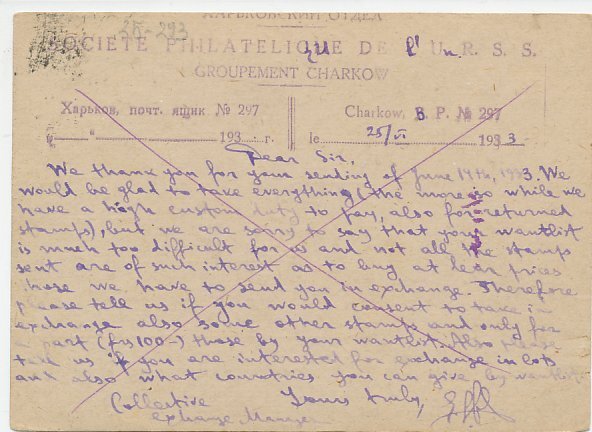 ХАРЬКОВСКИЙ ОТДЕЛ
35-293
SOCIÉTÉ PHILATELIQUE DE l'U.R.S.S.
GROUPEMENT CHARKOW
Харьков, почт. ящик № 297
Charkow, B. P. № 297
"193 г.
le 25/VI 1933
Dear Sir,
We thank you for your sending of June 14th, 1933. We
would be glad to take everything (the more so while we
have a high custom duty to pay, also for returned
stamps), but we are sorry to say that your wantlist
is much too difficult for us and not all the stamps
sent are of such interest as to buy at prices
those we have to send you in exchange. Therefore
please tell us if you would consent to take in
exchange also some other stamps and only for
a part (frs 100-) those by your wantlist. Also please
us if you are interested for exchange in lots
and also what countries you can give by wantlist.
Yours truly,
Collective
exchange Manager